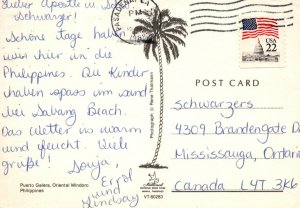 Lieber Apostle in S
Schwarzer!
Schöne Tage haben
wir hier in die
Philippines. Die Kinder
haben spass im sand
bei Sabang Beach.
Das Wetter is warm
und feucht. Viele
grüße! Sonja,
Errol
und
Lindsay
Puerto Galera, Oriental Mindoro
Philippines
PASADENA
PM
Photograph © Rene Thalmann
VT-80283
USA
22
POST CARD
Schwarzers
4309 Brandengate D
Mississauga, Ontari
Canada L4T 3K6